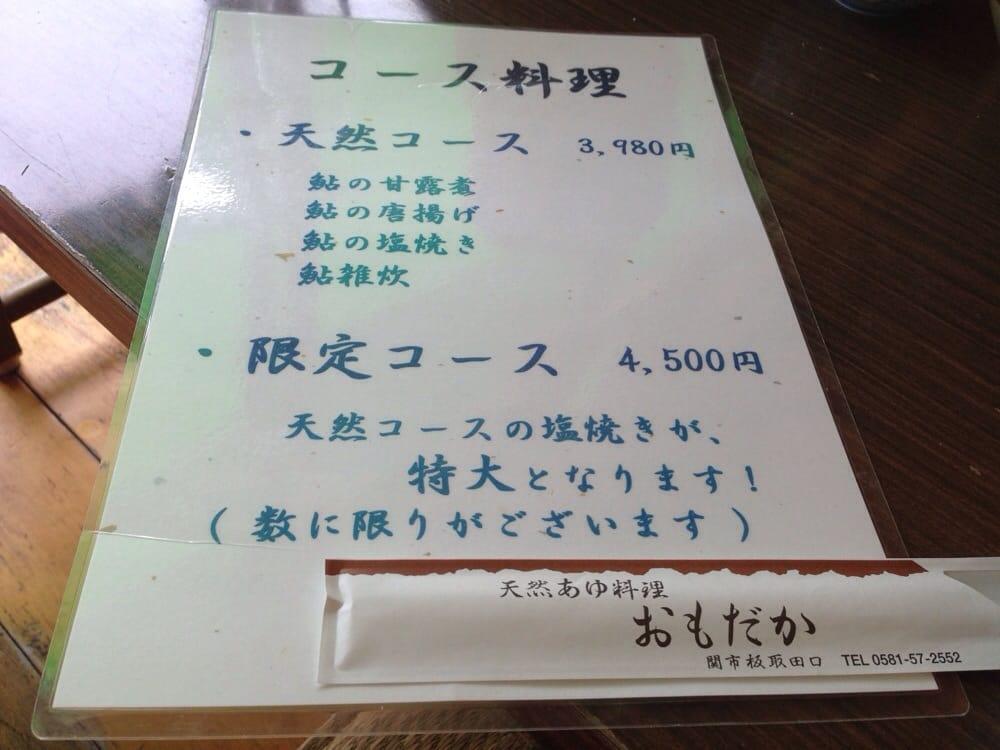 コース料理
・天然コース 3,980円
鮎の甘露煮
鮎の唐揚げ
鮎の塩焼き
鮎雑炊
・限定コース 4,500円
天然コースの塩焼きが、
特大となります!
(数に限りがございます)
天然あゆ料理
おもだか
関市板取田口 TEL 0581-57-2552